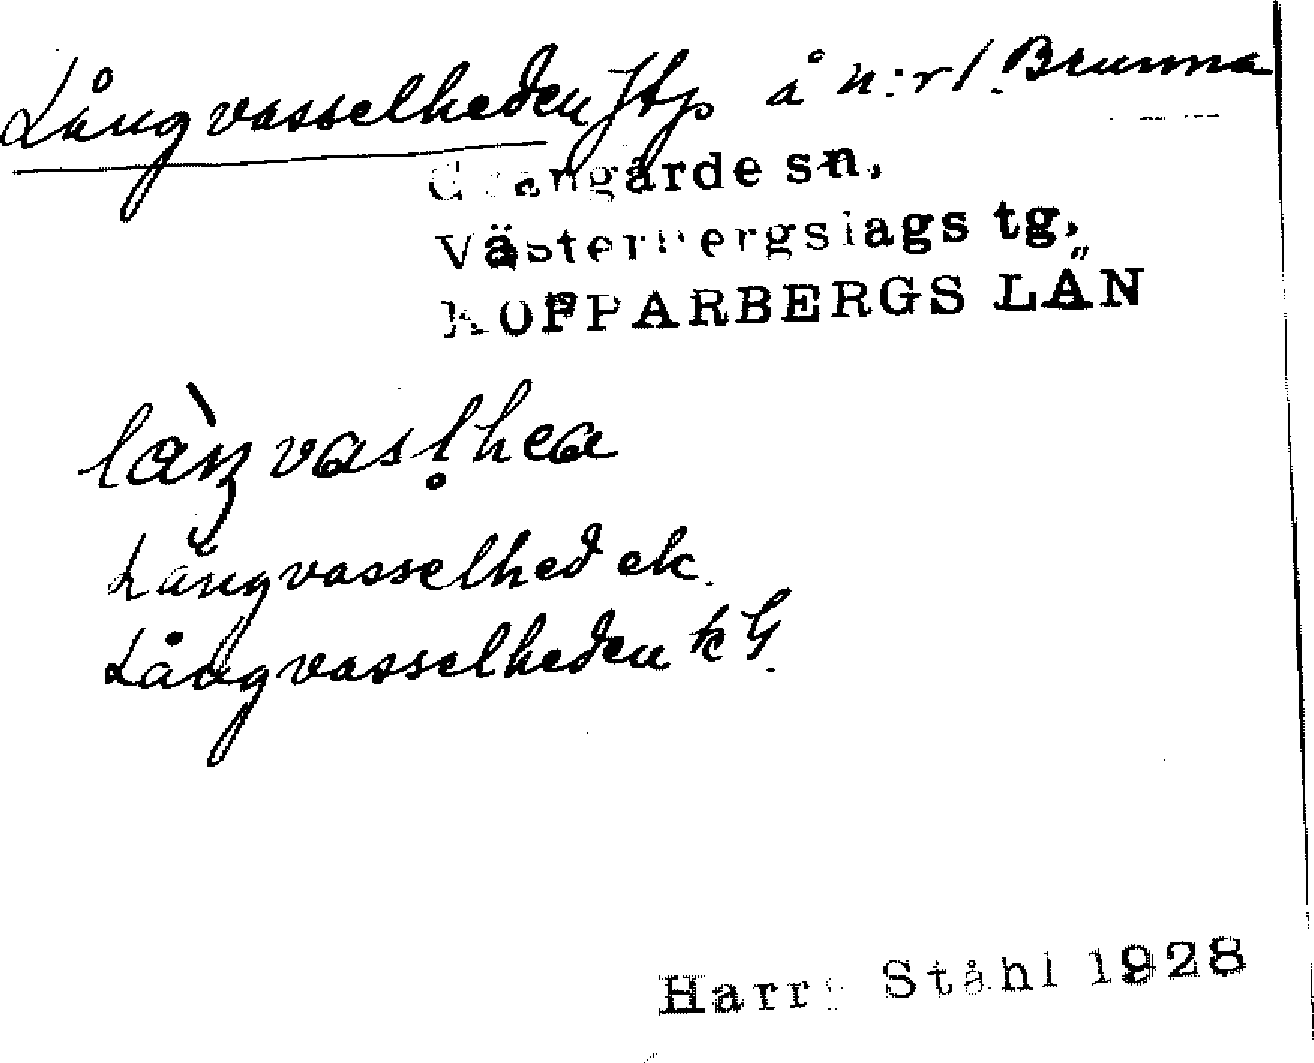 Långvasselheden Jtp å n:r 1. Brunna
Grangärde sn.
Västerbergslags tg.
KOPPARBERGS LÄN
làŋvasl̥hea
Långvasselhed ek.
Långvasselheden kG.
Harry Ståhl 1928